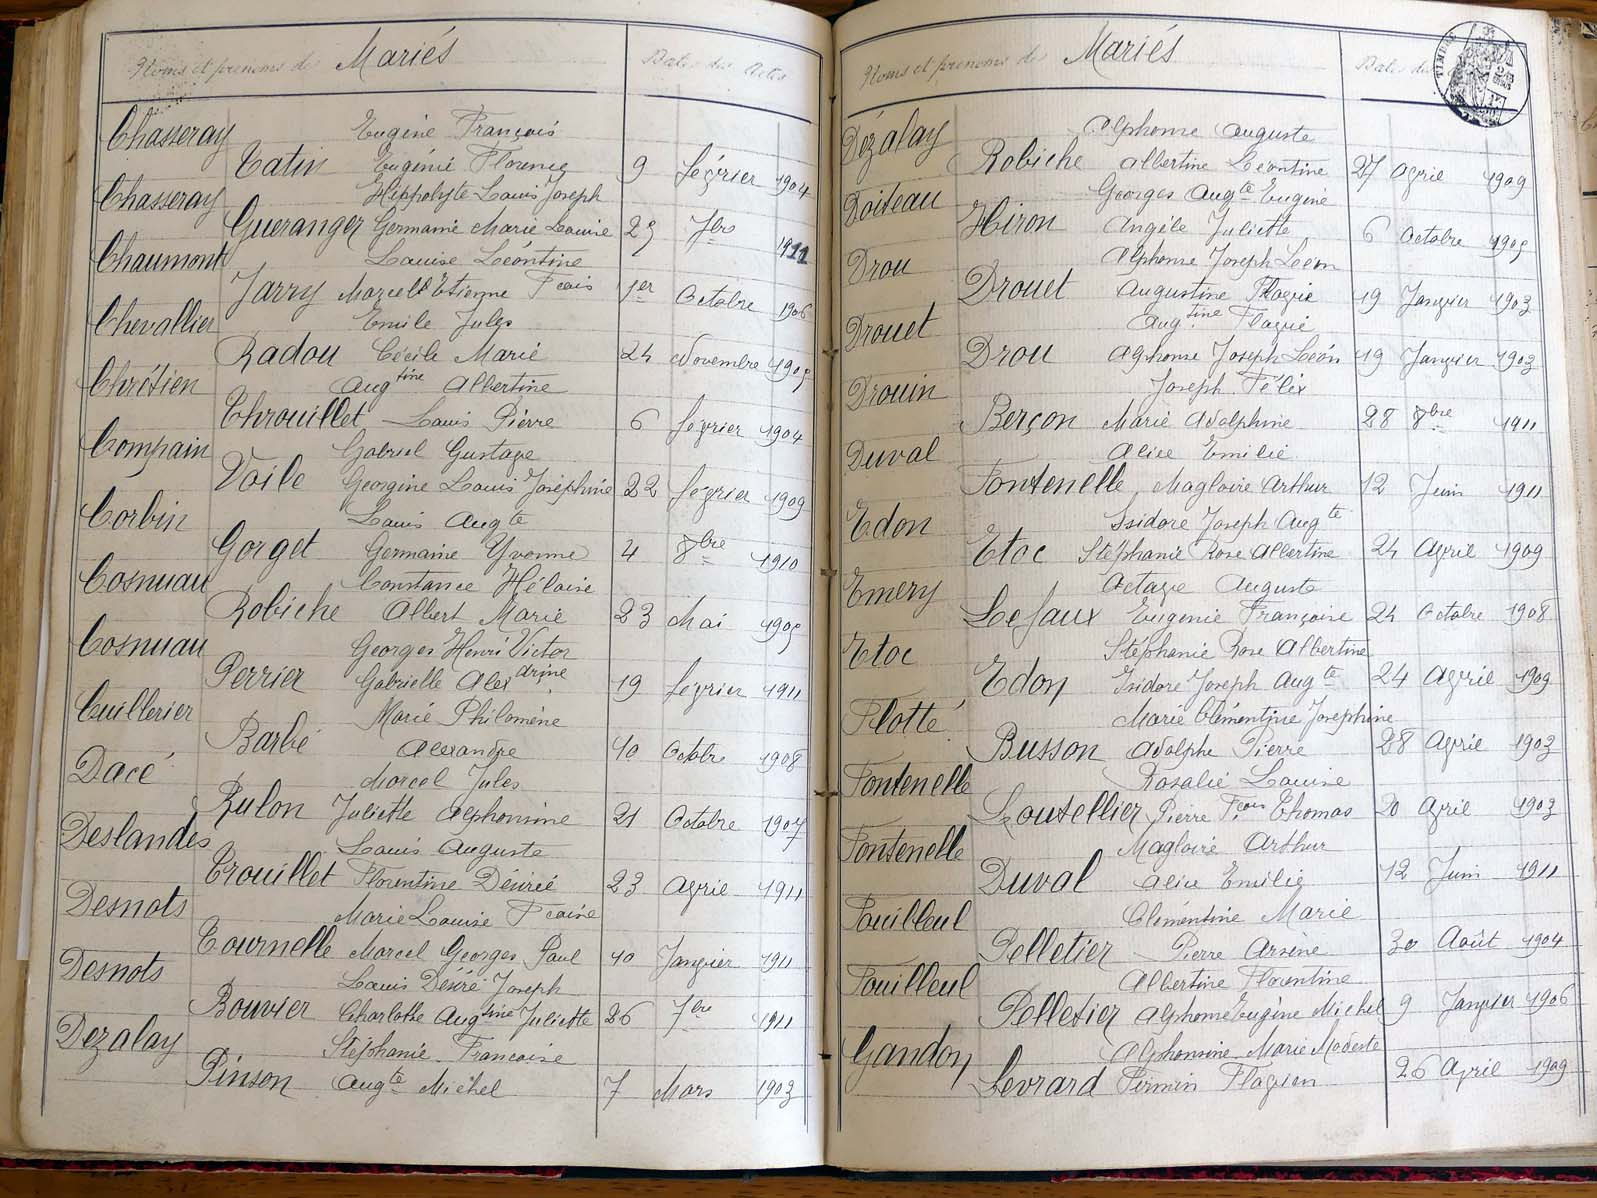 Noms et prénoms des Mariés Dates des Actes
Chasseray Eugène François
Tatin Eugénie Florence 9 février 1904
Chasseray Hippolyte Louis Joseph
Gueranger Germaine Marie Louise 29 7bre 1911
Chaumont Louise Léontine
Jarry Marcel Etienne Fcois 1er Octobre 1906
Chevallier Emile Jules
Radou Cécile Marie 24 Novembre 1905
Chrétien Augtine Albertine
Throuillet Louis Pierre 6 février 1904
Compain Gabriel Gustave
Voile Georgine Louis Joséphine 22 février 1909
Corbin Louis Augte
Gorget Germaine Yvonne 4 8bre 1910
Cosnuau Constance Héloise
Robiche Albert Marie 23 Mai 1905
Cosnuau Georges Henri Victor
Perrier Gabrielle Alexdrine 19 février 1911
Cuillerier Marie Philomène
Barbé Alexandre 10 Octobre 1908
Dacé Marcel Jules
Rulon Juliette Alphonsine 21 Octobre 1907
Deslandes Louis Auguste
Trouillet Florentine Désirée 23 Avril 1911
Desnots Marie Louise Fcoise
Tournelle Marcel Georges Paul 10 Janvier 1911
Desnots Louis Désiré Joseph
Bouvier Charlotte Augtine Juliette 26 7bre 1911
Dezalay Stéphanie Françoise
Pinson Augte Michel 7 Mars 1903
Noms et prénoms des Mariés Dates des
TIMBRE
Dézalay Alphonse Auguste
Robiche Albertine Léontine 27 Avril 1909
Doiteau Georges Augte Eugène
Hiron Angèle Juliette 6 Octobre 1905
Drou Alphonse Joseph Léon
Drouet Augustine Flavie 19 Janvier 1903
Drouet Augtine Flavie
Drou Alphonse Joseph Léon 19 Janvier 1903
Drouin Joseph Félix
Berçon Marie Adolphine 28 8bre 1911
Duval Alice Emilie
Fontenelle Magloire Arthur 12 Juin 1911
Edon Isidore Joseph Augte
Etoc Stéphanie Rose Albertine 24 Avril 1909
Emery Octave Auguste
Lefaux Eugenie Françoise 24 Octobre 1908
Etoc Stéphanie Rose Albertine
Edon Isidore Joseph Augte 24 Avril 1909
Flotté Marie Clémentine Joséphine
Busson Adolphe Pierre 28 Avril 1903
Fontenelle Rosalie Louise
Loutellier Pierre Fcois Thomas 20 Avril 1903
Fontenelle Magloire Arthur
Duval Alice Emilie 12 Juin 1911
Fouilleul Clémentine Marie
Pelletier Pierre Arsène 30 Août 1904
Fouilleul Albertine Florentine
Pelletier Alphonse Eugène Michel 9 Janvier 1906
Gandon Alphonsine Marie Modeste
Levrard Firmin Flavien 26 Avril 1909